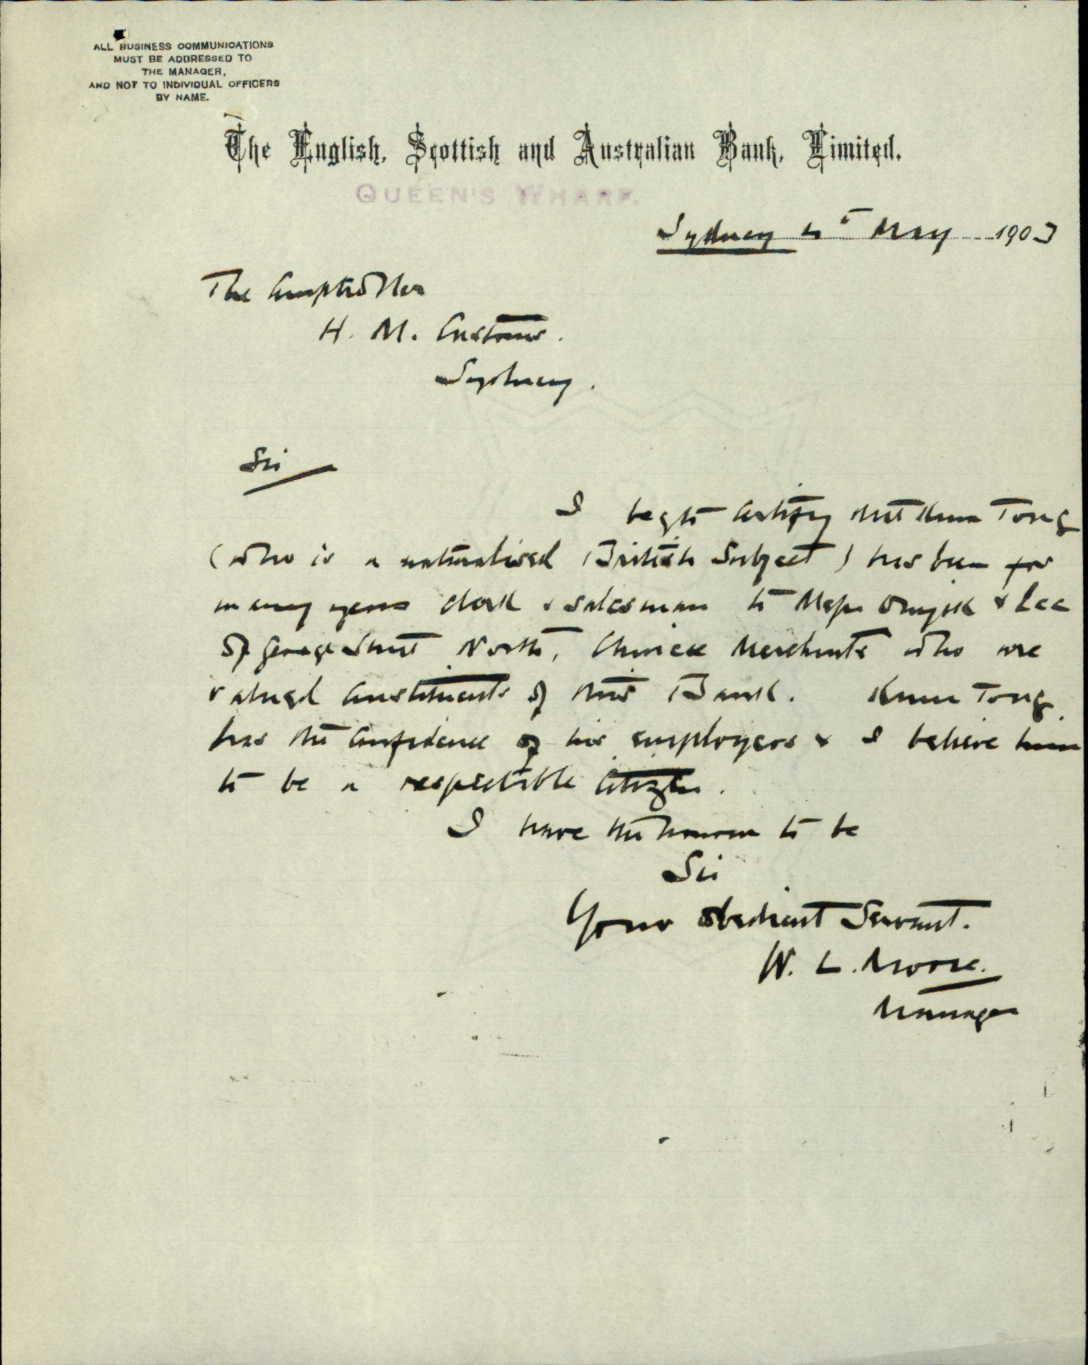 ALL BUSINESS COMMUNICATIONS
MUST BE ADDRESSED TO
THE MANAGER,
AND NOT TO INDIVIDUAL OFFICERS
BY NAME.
The English, Scottish and Australian Bank, Limited.
QUEEN'S WHARF.
Sydney May 1903
The Comptroller
H. M. Customs.
Sydney.
Sir
I beg to certify that Kum Tong
(who is a naturalised British Subject) has been for
many years clerk & salesman to & Lee
of George Street North, Chinese Merchants who are
valued Constituents of this Bank. Kum Tong
has the confidence of his employers & I believe him
to be a respectable Citizen.
I have the honour to be
Sir
Your obedient Servant.
W. L. Moore.
Manager